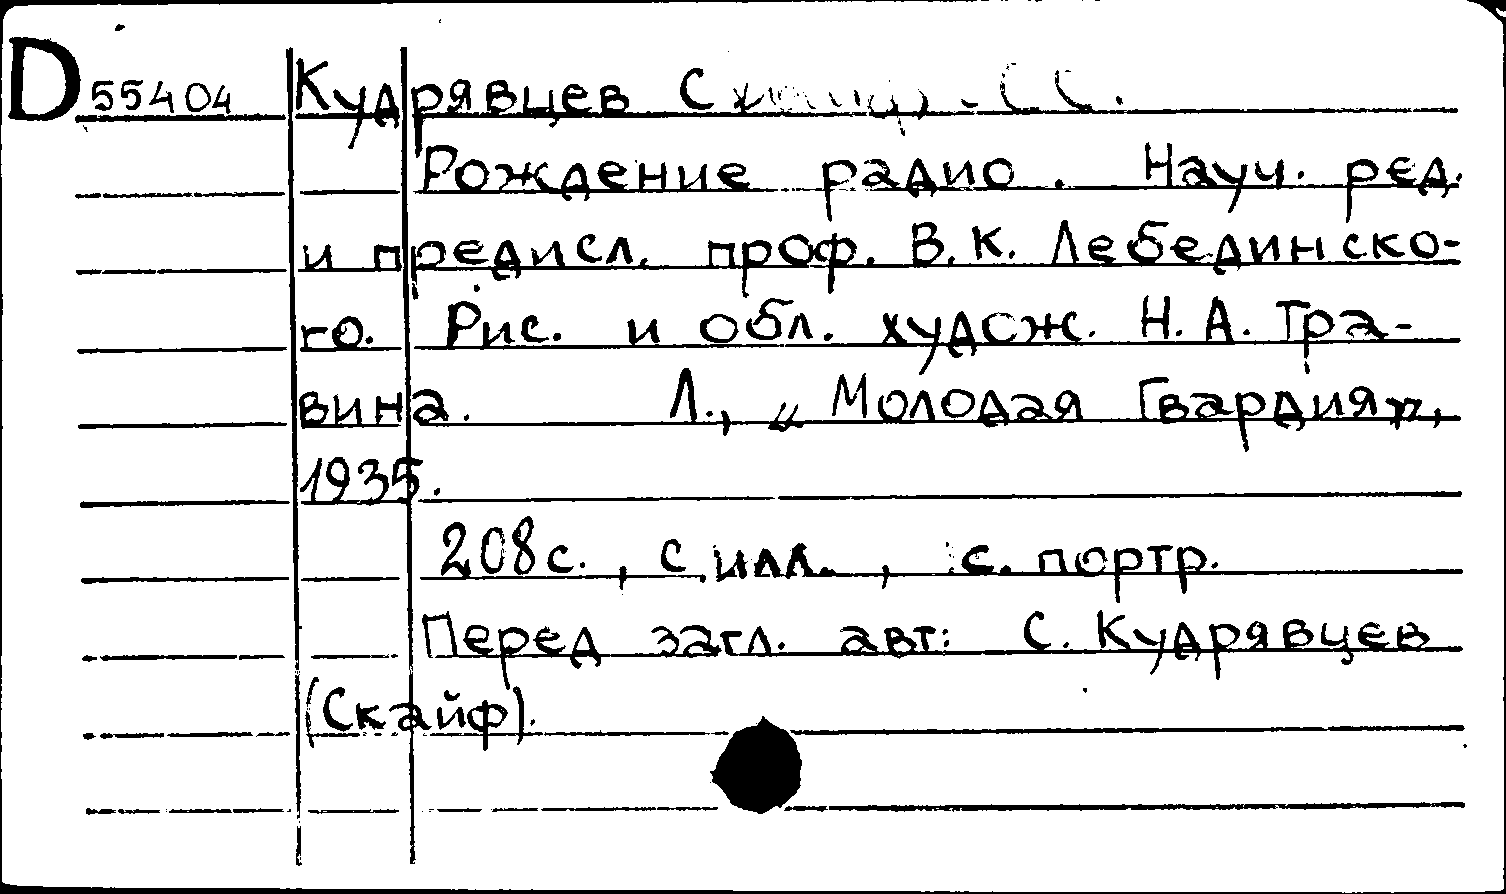 D 55404 Кудрявцев С
Рождение радио. Науч. ред.
и предисл. проф. В.К. Лебединско-
го. Рис. и обл. худож. Н.А. Тра-
вина. Л., „Молодая Гвардия",
1935.
208с., с илл., с. портр.
Перед загл. авт: С. Кудрявцев
(Скайф).